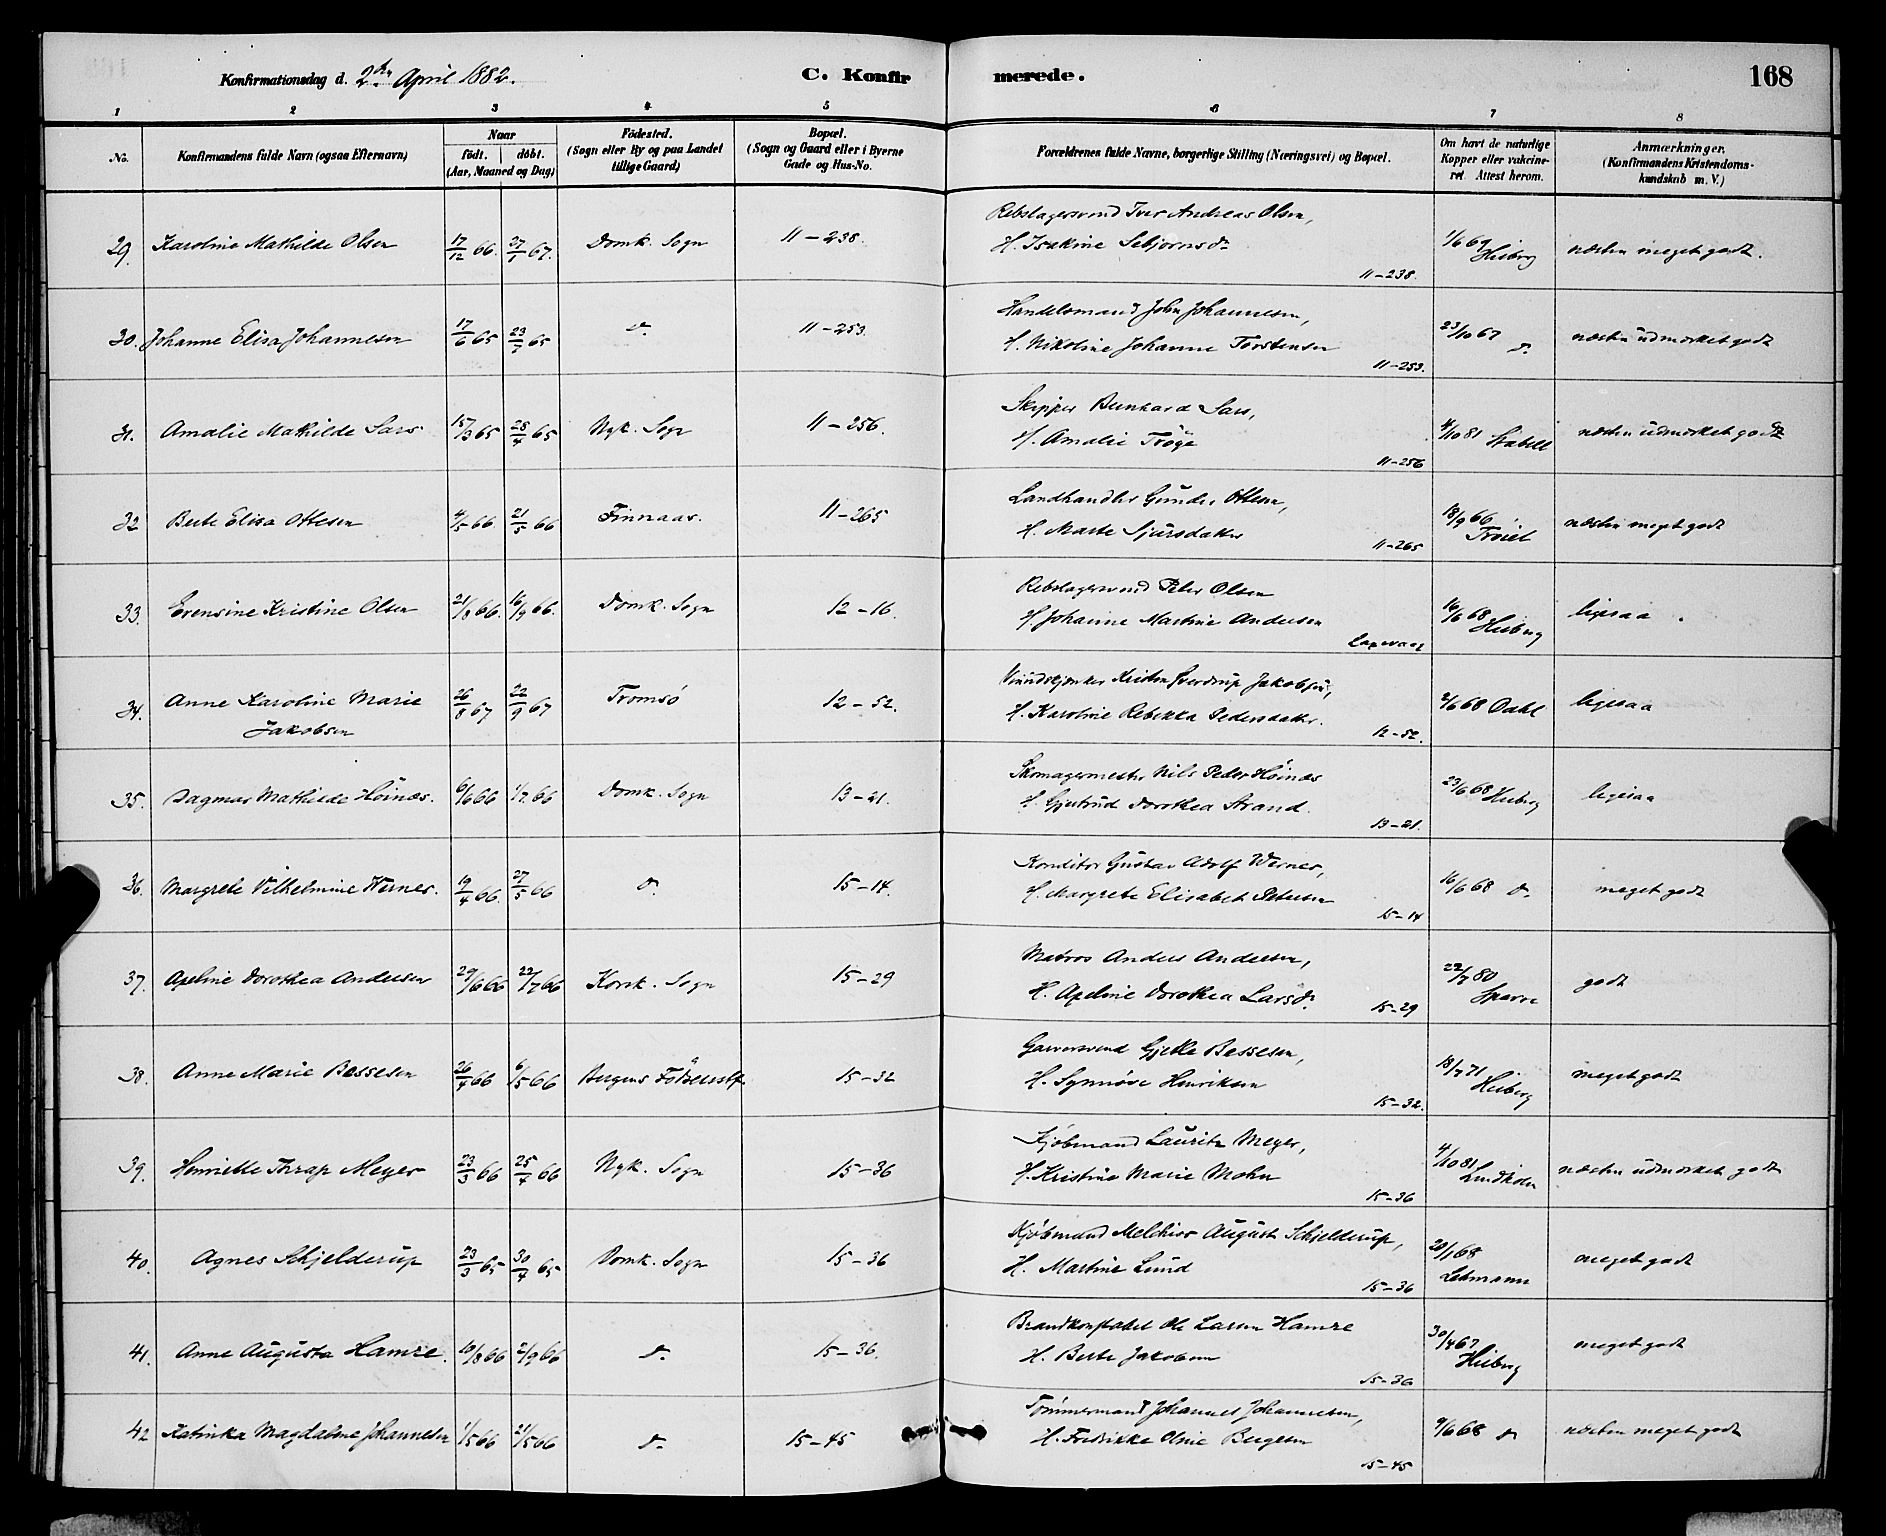 Konfirmationsdag d. 2den April 1882. C. Konfirmerede. 168
1 2 3 4 5 6 7 8
No. Konfirmandens fulde Navn (ogsaa Efternavn) Naar födt. döbt. (Aar, Maaned og Dag) Födested. (Sogn eller By og paa Landet tillige Gaard) Bopæl. (Sogn og Gaard eller i Byerne Gade og Hus-No. Forældrenes fulde Navne, borgerlige Stilling (Næringsvei) og Bopæl. Om havt de naturlige Kopper eller vakcineret. Attest herom. Anmærkninger. (Konfirmandens Kristendomskundskab m. V.)
29. Karoline Mathilde Olsen 17/12 66. 27/1 67. Domk. Sogn 11-238. Rebslagersvend Iver Andreas Olsen,
H. Isakine Sebjørnsdr 11-238. 1/6 69 Heiberg næsten meget godt.
30. Johanne Elisa Johannesen 17/6 65 23/7 65 do 11-253. Handelsmand John Johannesen,
H. Nikoline Johanne Torstensen 11-253. 23/10 67 do næsten udmærket godt
31. Amalie Mathilde Sars 15/3 65 28/4 65 Nyk. Sogn 11-256. Skipper Bernhard Sars,
H. Amalie Trøge 11-256 4/10 81 Stabell næsten udmærket godt
32 Berte Elisa Ottesen 4/5 66. 21/5 66 Finnaas. 11-265 Landhandler Gunder Ottesen,
H. Marte Sjursdatter 11-265 18/9 66 næsten meget godt
33. Evensine Kristine Olsen 21/8 66. 16/9 66. Domk. Sogn 12-16. Rebslagersvend Peter Olsen
H. Johanne Martine Andersen Laxevaag 16/6 68 Heiberg ligesaa.
34. Anne Karoline Marie Jakobsen 26/8 67 22/9 67 Tromsö 12-52. Kristen Sverdrup Jakobsen,
H. Karoline Rebekka Pedersdatter. 12-52. 2/6 68 Dahl ligesaa
35. Dagmar Mathilde Höinæs. 6/6 66 1/7 66 Domk. Sogn 13-21. Skomagermester Nils Peder Höinæs
H. Gjertrud Dorothea Strand. 13-21. 23/6 68 Heiberg ligesaa
36. Margrete Vilhelmine Werner. 19/4 66. 27/5 66 do 15-14. Konditor Gustav Adolf Werner,
H. Margrete Elisabet Petersen 15-14 16/6 68 do meget godt
37. Apeline Dorothea Andersen 29/6 66 22/7 66 Korsk. Sogn 15-29 Matros Anders Andersen,
H. Apeline Dorothea Larsdr 15-29 22/7 80 Sparre godt
38. Anne Marie Bessesen 26/4 66 6/5 66 Bergens Födselsstf. 15-32 Garversvend Gjetle Bessesen,
H. Synnøve Henriksen 15-32. 18/7 71 Heiberg meget godt
39. Henriette Thrap Meyer 23/3 66 25/4 66 Nyk. Sogn 15-36 Kjøbmand Lauritz Meyer,
H. Kristine Marie Mohn 15-36 4/10 81 Lindholm næsten udmærket godt
40. Agnes Schjelderup 23/3 65 30/4 65 Domk. Sogn 15-36 Kjøbmand Melchior August Schjelderup,
H. Martine Lund 15-36 20/1 68 Lehmann meget godt
41. Anne Augusta Hamre. 10/8 66 2/9 66 do 15-36. Brandkonstabel Ole Larsen Hamre
H. Berte Jakobsen 15-36 30/4 67 Heiberg meget godt
42 Katinka Magdalene Johannesen 1/5 66 21/5 66 do 15-45 Tømmermand Johannes Johannesen,
H. Fredrikke Oline Bergesen 15-45 9/6 68 do næsten meget godt